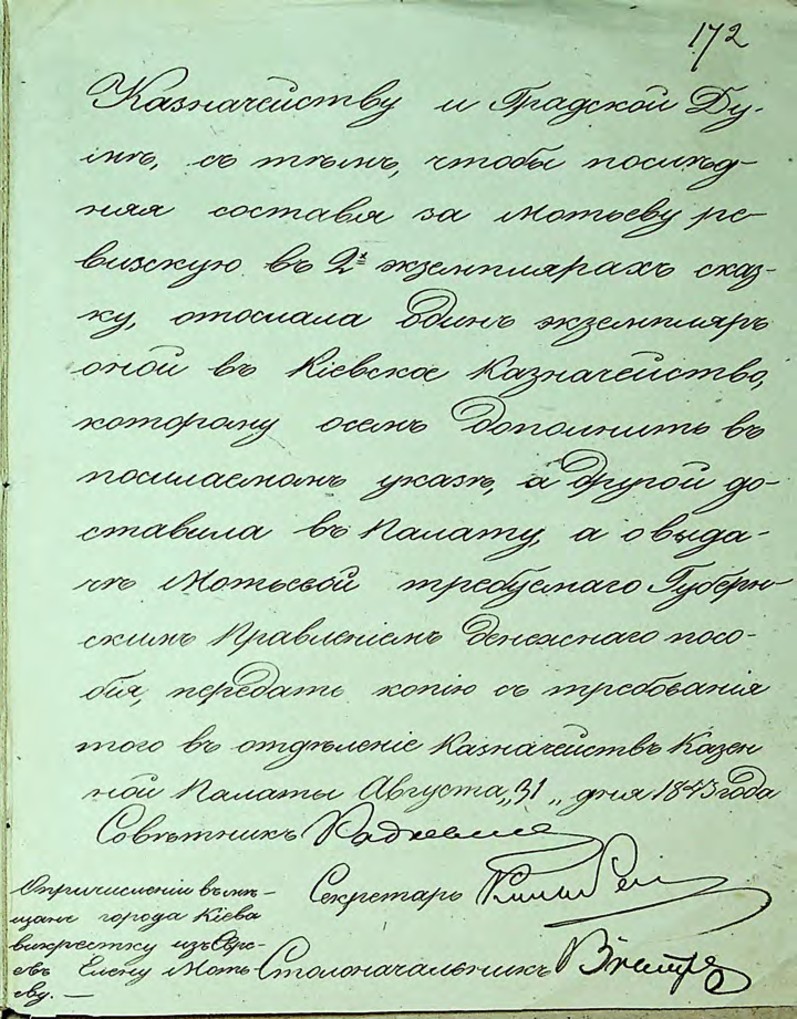 172
Казначейству и Градской Ду-
мѣ, съ тѣмъ, чтобы послѣд-
няя составя за Мотьеву ре-
визскую въ 2х экземплярахъ сказ-
ку, отослала одинъ экземпляръ
оной въ Кіевское Казначейство,
которому осемъ дополнить въ
посылаемомъ указѣ, а другой до-
ставила въ Палату, а о выда-
чѣ Мотьевой требуемаго Губерн-
скимъ Правленіемъ денежнаго посо-
бія, передать копію съ требованія
того въ отдѣленіе Казначействъ Казен
ной Палаты Августа „31„ дня 1843 года
Совѣтникъ
Секретарь
Столоначальникъ
О причисленіи въ мѣ-
щане города Кіева
викрестку изъ Евре-
евъ Елену Моть-
еву. —